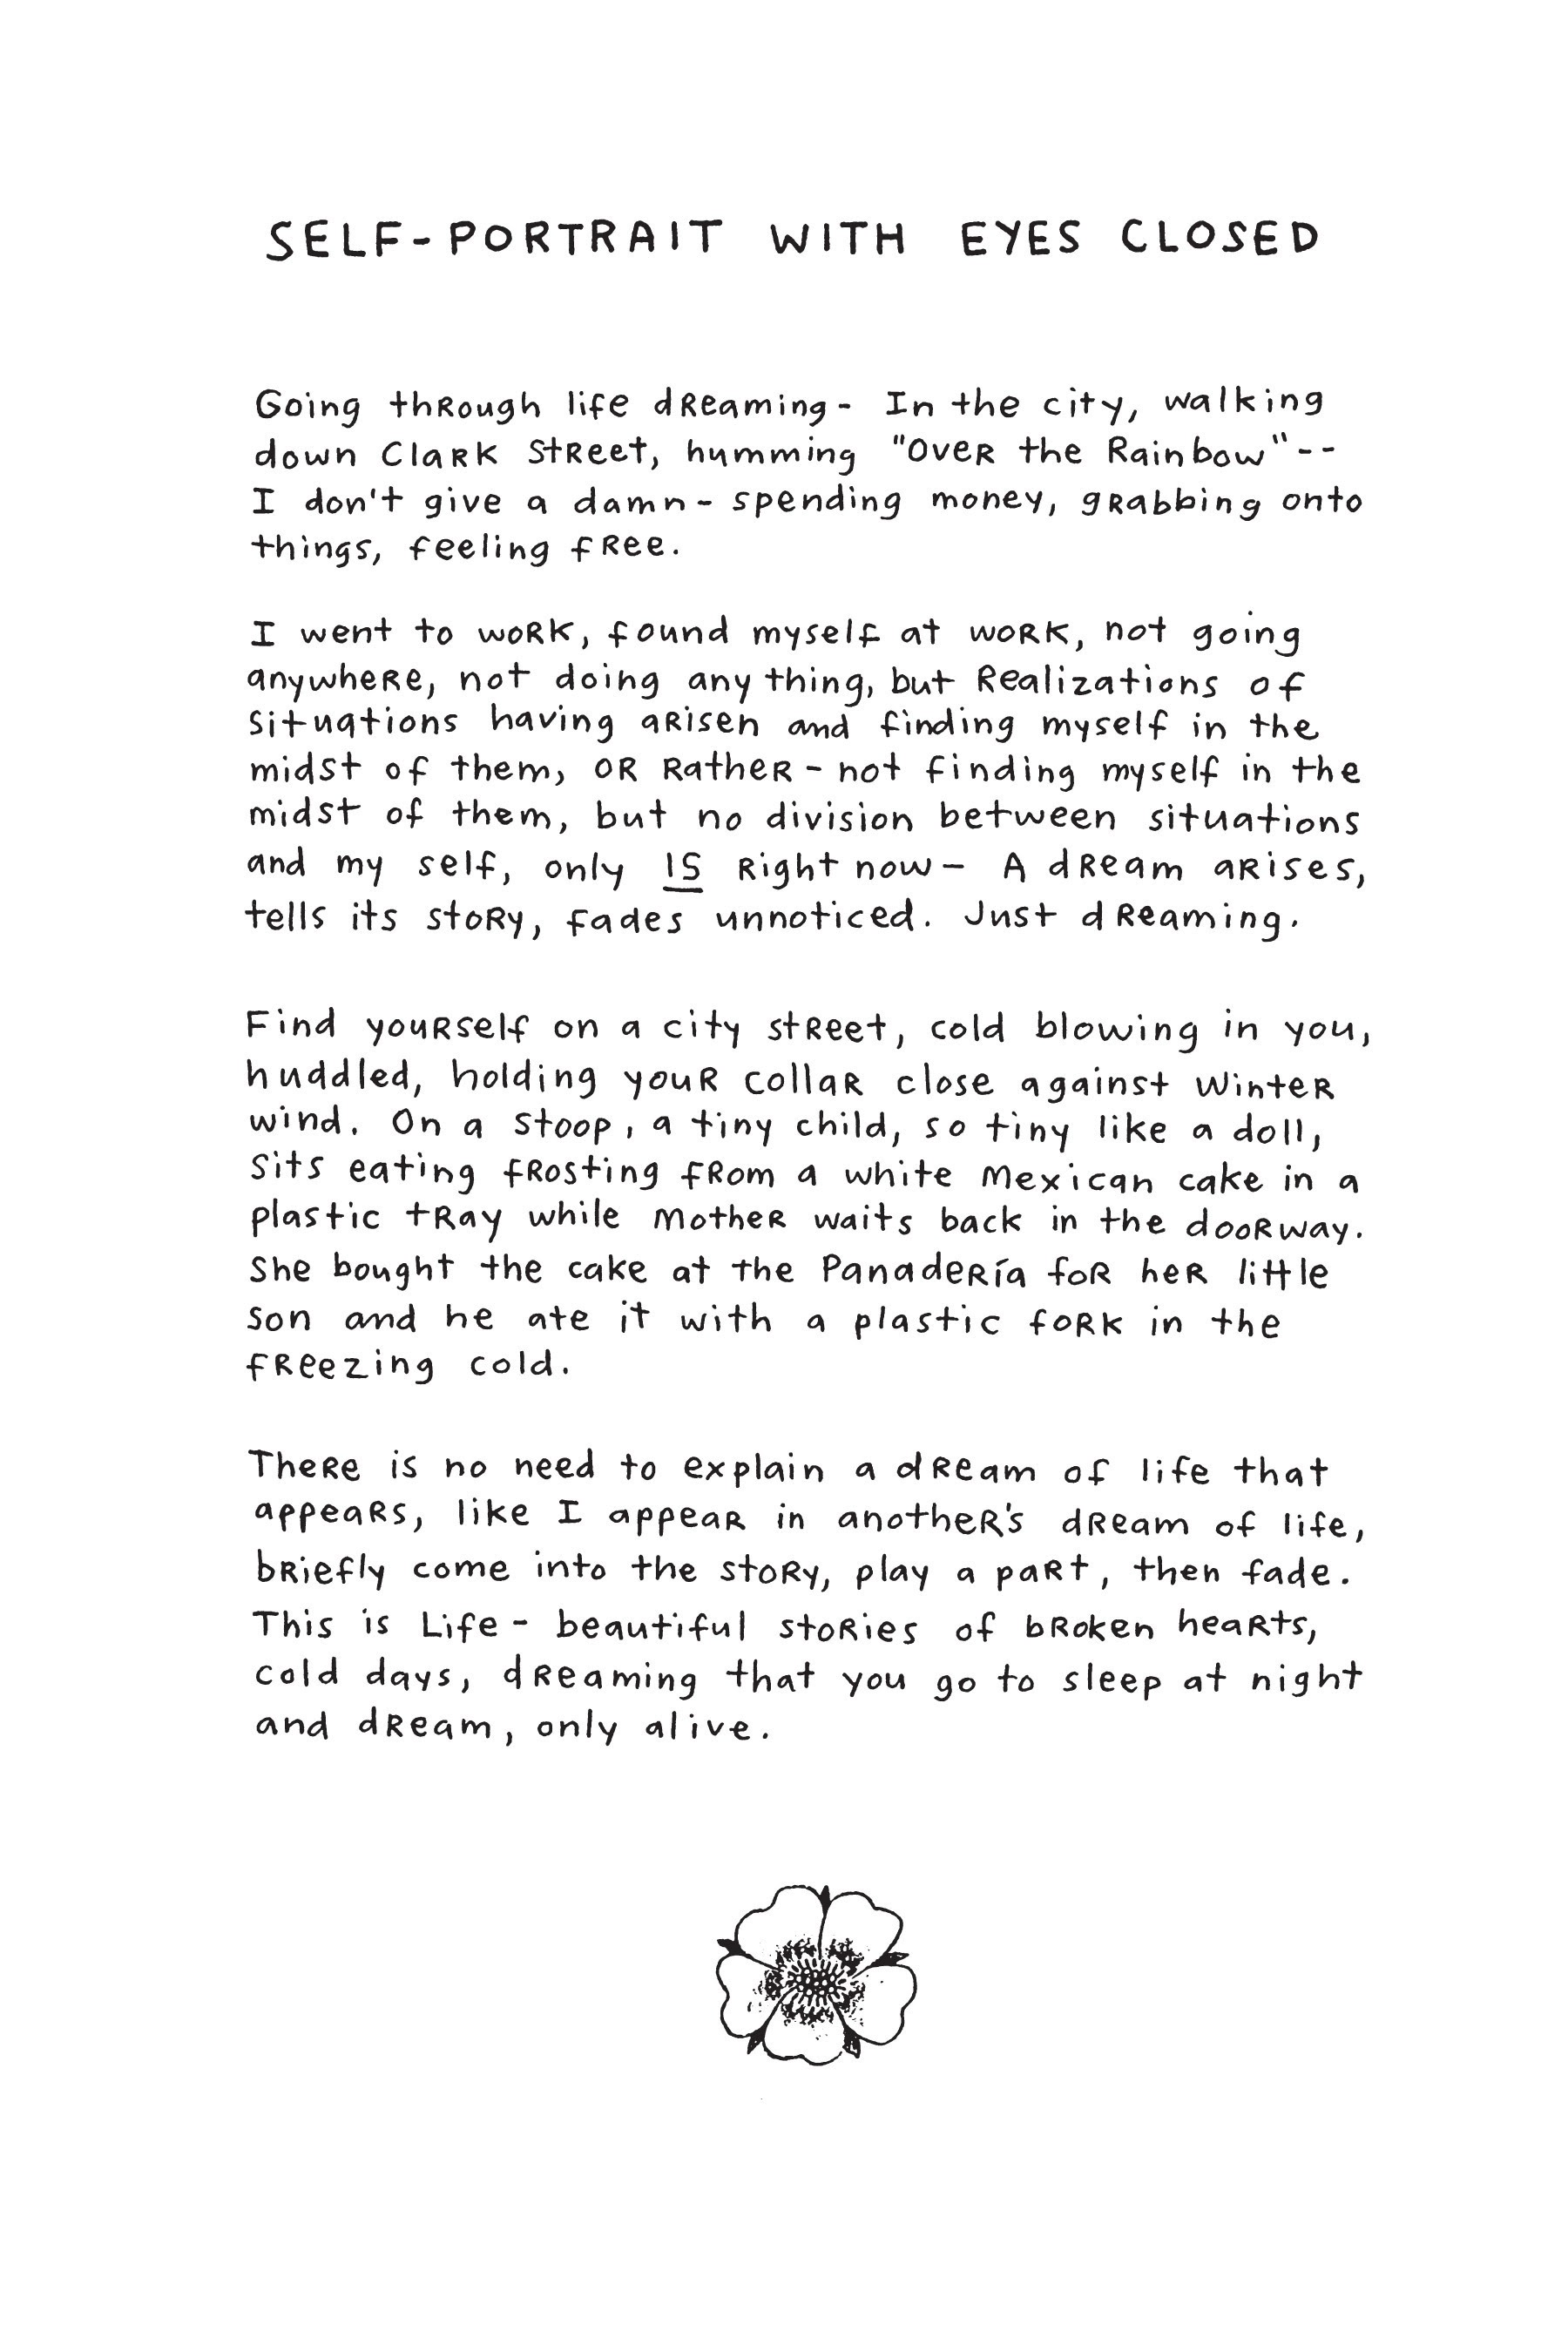 SELF-PORTRAIT WITH EYES CLOSED
Going through life dreaming- In the city, walking
down Clark Street, humming "Over the Rainbow"--
I don't give a damn- spending money, grabbing onto
things, feeling free.
I went to work, found myself at work, not going
anywhere, not doing any thing, but Realizations of
situations having arisen and finding myself in the
midst of them, or Rather- not finding myself in the
midst of them, but no division between situations
and my self, only IS Right now- A dream arises,
tells its story, fades unnoticed. Just dreaming.
Find yourself on a city street, cold blowing in you,
huddled, holding your collar close against winter
wind. On a stoop, a tiny child, so tiny like a doll,
sits eating frosting from a white Mexican cake in a
plastic tray while Mother waits back in the doorway.
She bought the cake at the Panadería for her little
son and he ate it with a plastic fork in the
freezing cold.
There is no need to explain a dream of life that
appears, like I appear in another's dream of life,
briefly come into the story, play a part, then fade.
This is Life- beautiful stories of broken hearts,
cold days, dreaming that you go to sleep at night
and dream, only alive.